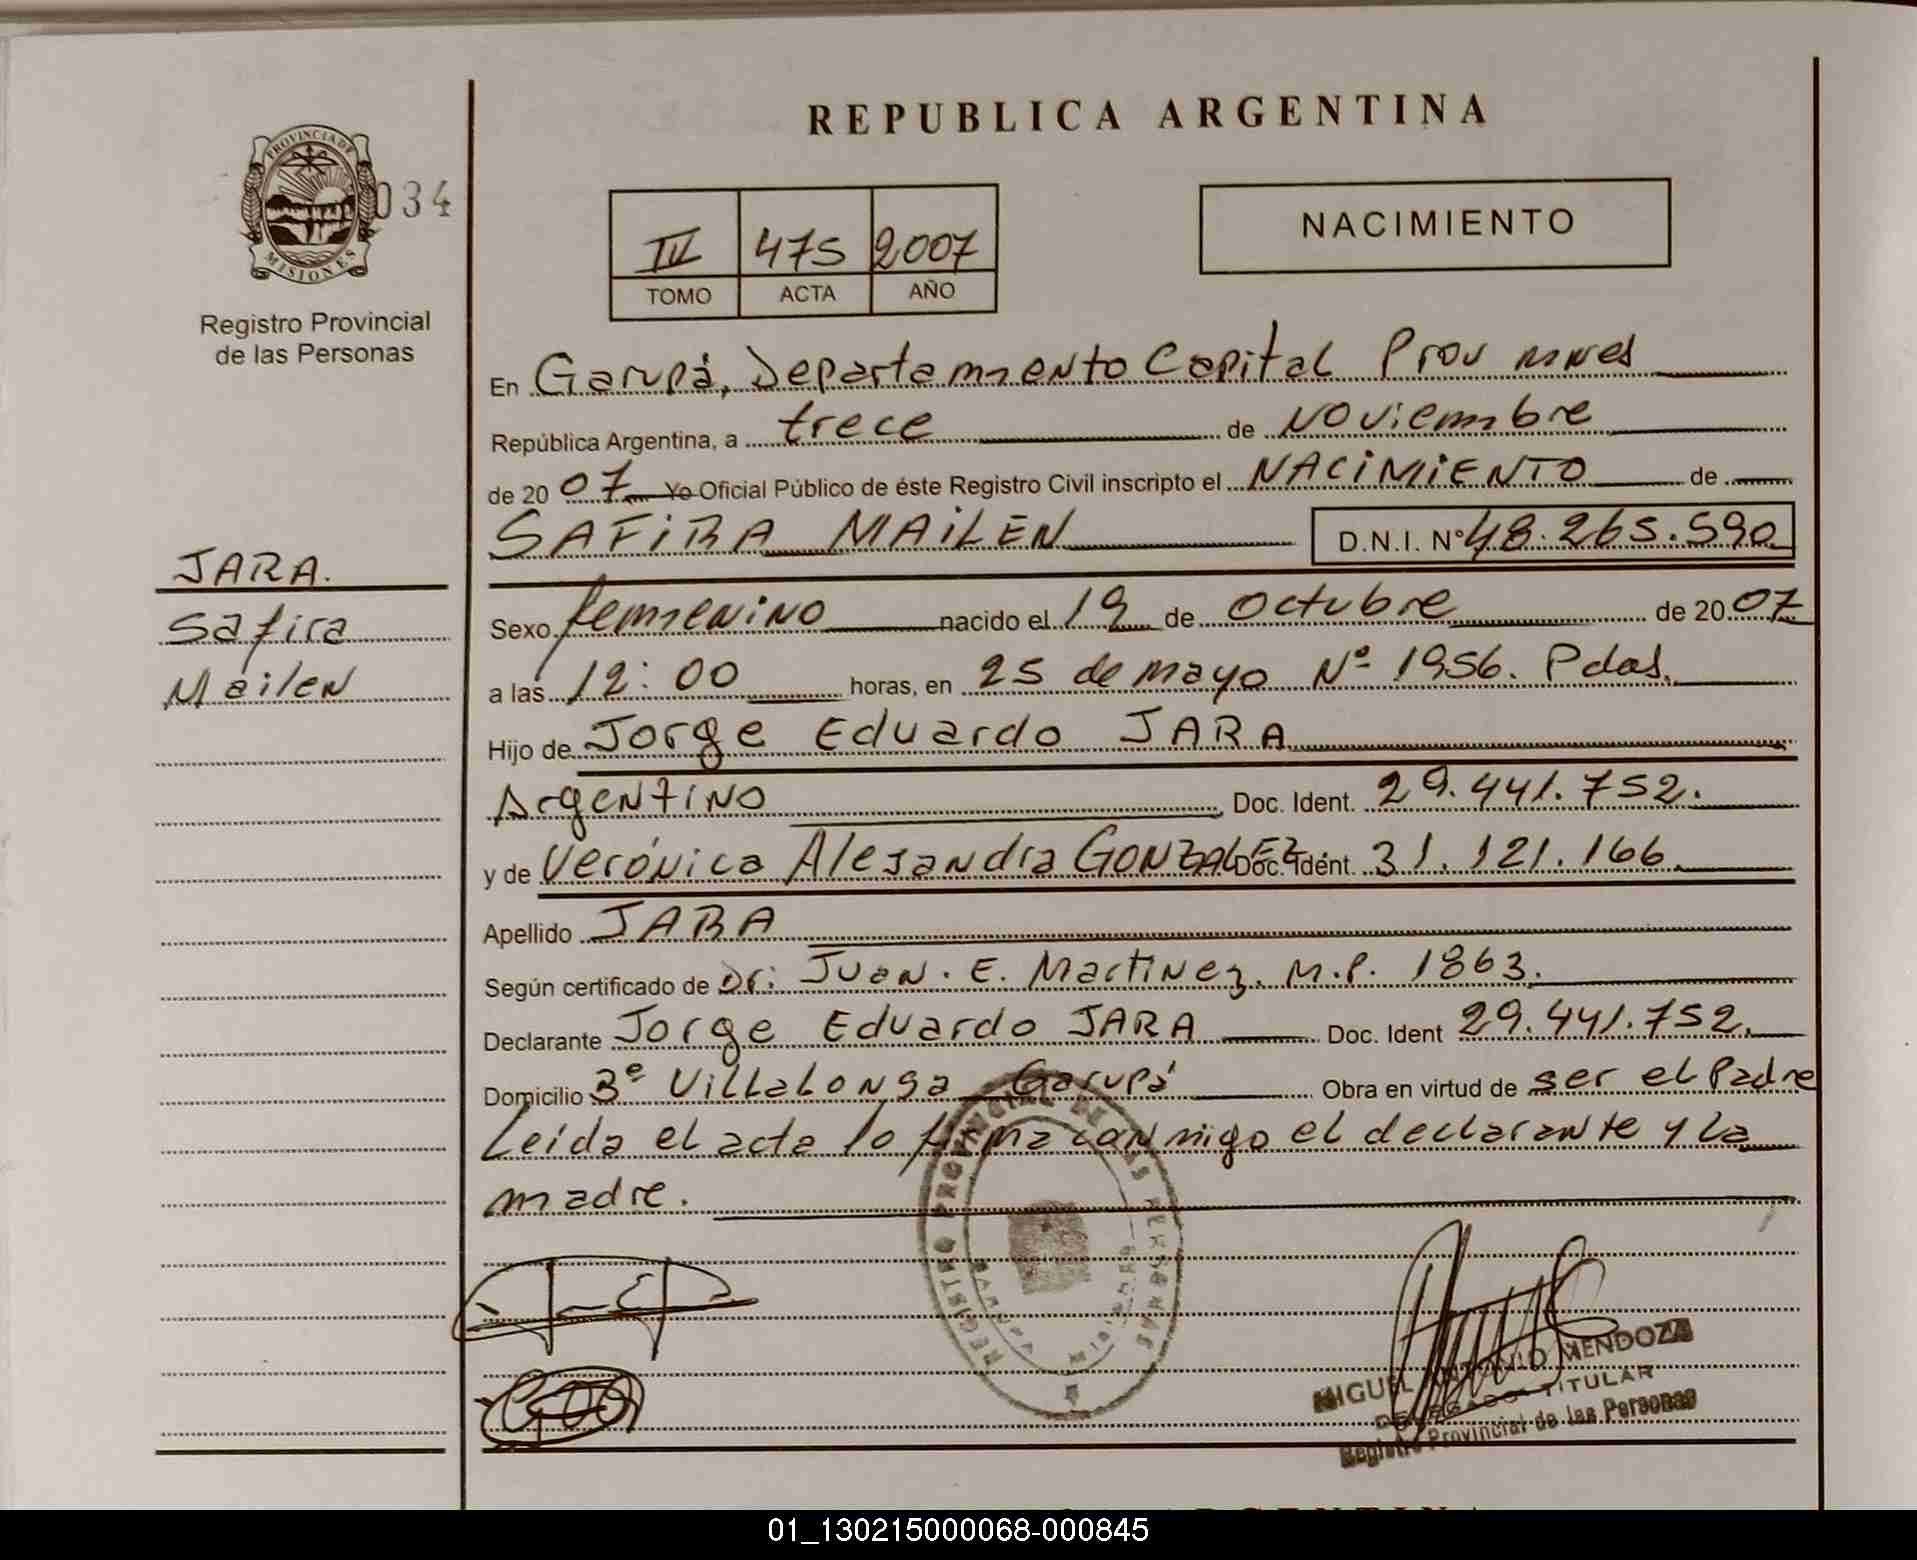 REPUBLICA ARGENTINA
PROVINCIA DE
MISIONES
034
Registro Provincial
de las Personas
IV 475 2007
TOMO ACTA AÑO
NACIMIENTO
En Garupá, Departamento Capital Prov mnes
República Argentina, a trece de Noviembre
de 20 07 Yo Oficial Público de éste Registro Civil inscripto el NACIMIENTO de
SAFIRA MAILEN D.N.I. N° 48.265.590
JARA.
Safira
Mailen
Sexo femenino nacido el 19 de Octubre de 20 07
a las 12:00 horas, en 25 de mayo Nº 1956. Pdas.
Hijo de Jorge Eduardo JARA
Argentino Doc. Ident. 29.441.752.
y de Verónica Alejandra GONZALEZ Doc. Idént. 31.121.166.
Apellido JARA
Según certificado de Dr: Juan. E. Martinez. M.P. 1863.
Declarante Jorge Eduardo JARA Doc. Ident 29.441.752.
Domicilio Bº Villalonga Garupá Obra en virtud de ser el Padre
Leída el acta lo firma conmigo el declarante y la
madre.
REGISTRO PROVINCIAL DE LAS PERSONAS
MIGUEL ANTONIO MENDOZA
DELEGADO TITULAR
Registro Provincial de las Personas
01_130215000068-000845